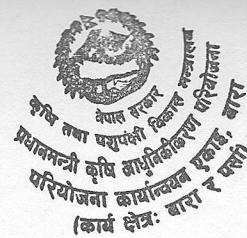 नेपाल सरकार
कृषि तथा पशुपन्छी विकास मन्त्रालय
प्रधानमन्त्री कृषि आधुनिकीकरण परियोजना
परियोजना कार्यान्वयन एकाइ, बारा
(कार्य क्षेत्रः बारा र पर्सा)